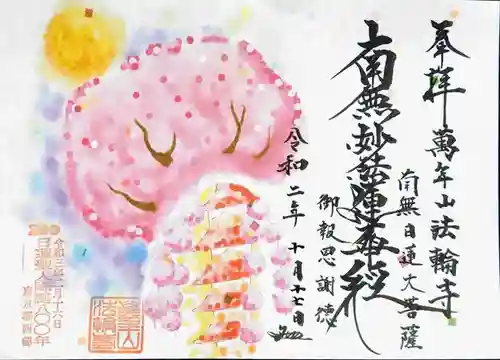 奉拝 萬年山 法輪寺
南無日蓮大菩薩
南無妙法蓮華経
御報恩謝徳
令和二年 十月十七日
令和三年二月十六日
日蓮聖人
八〇〇年